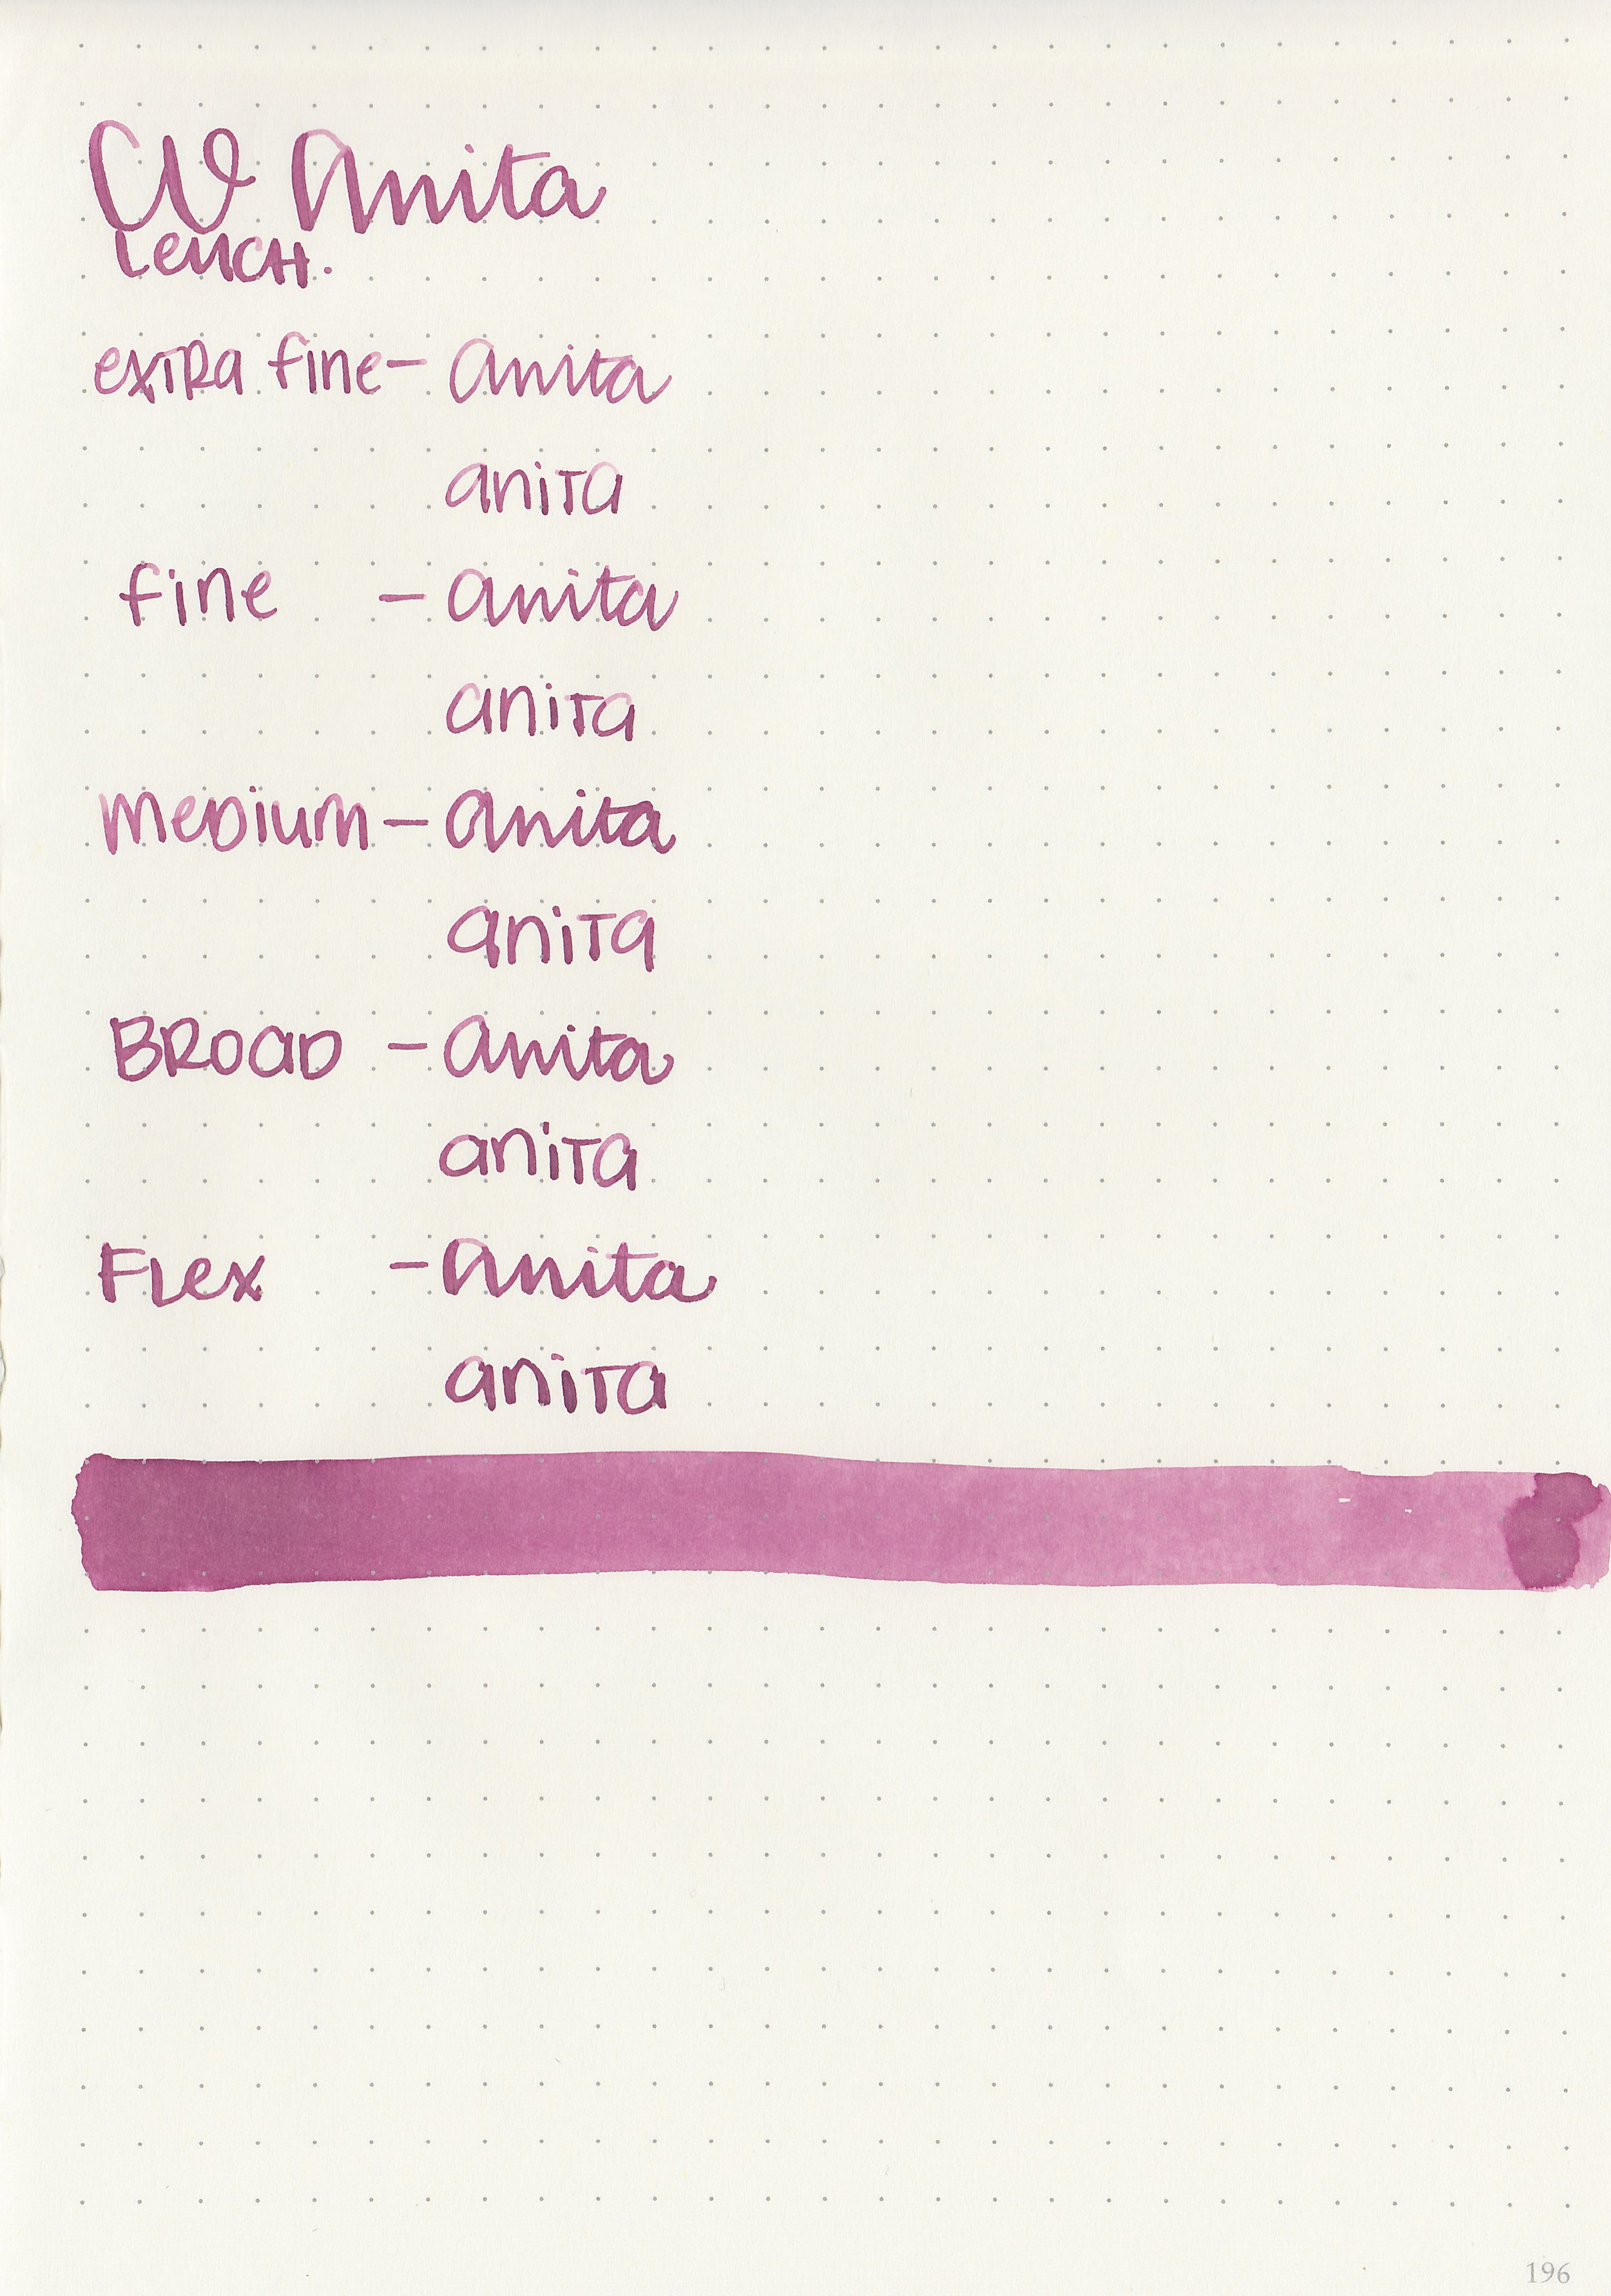 CV Anita
LEUCH.
extra fine - anita
anita
fine - anita
anita
medium - anita
anita
BROAD - anita
anita
FLex - anita
anita
196